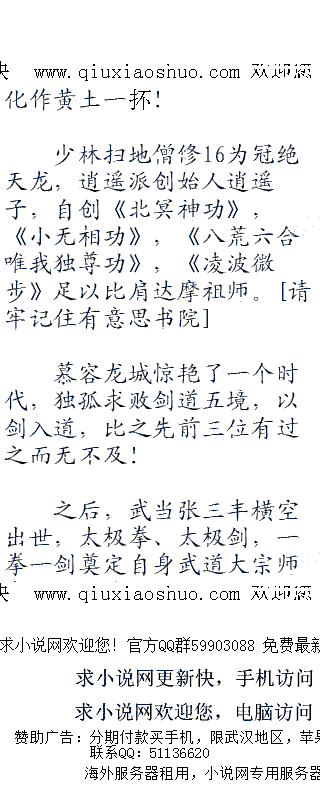 快 www.qiuxiaoshuo.com 欢迎您
化作黄土一抔!
少林扫地僧修16为冠绝
天龙，逍遥派创始人逍遥
子，自创《北冥神功》，
《小无相功》，《八荒六合
唯我独尊功》，《凌波微
步》足以比肩达摩祖师。[请
牢记住有意思书院]
慕容龙城惊艳了一个时
代，独孤求败剑道五境，以
剑入道，比之先前三位有过
之而无不及!
之后，武当张三丰横空
出世，太极拳、太极剑，一
拳一剑奠定自身武道大宗师
快 www.qiuxiaoshuo.com 欢迎您
求小说网欢迎您! 官方QQ群59903088 免费最新
求小说网更新快，手机访问
求小说网欢迎您，电脑访问
赞助广告: 分期付款买手机，限武汉地区，苹果
联系QQ: 51136620
海外服务器租用，小说网专用服务器